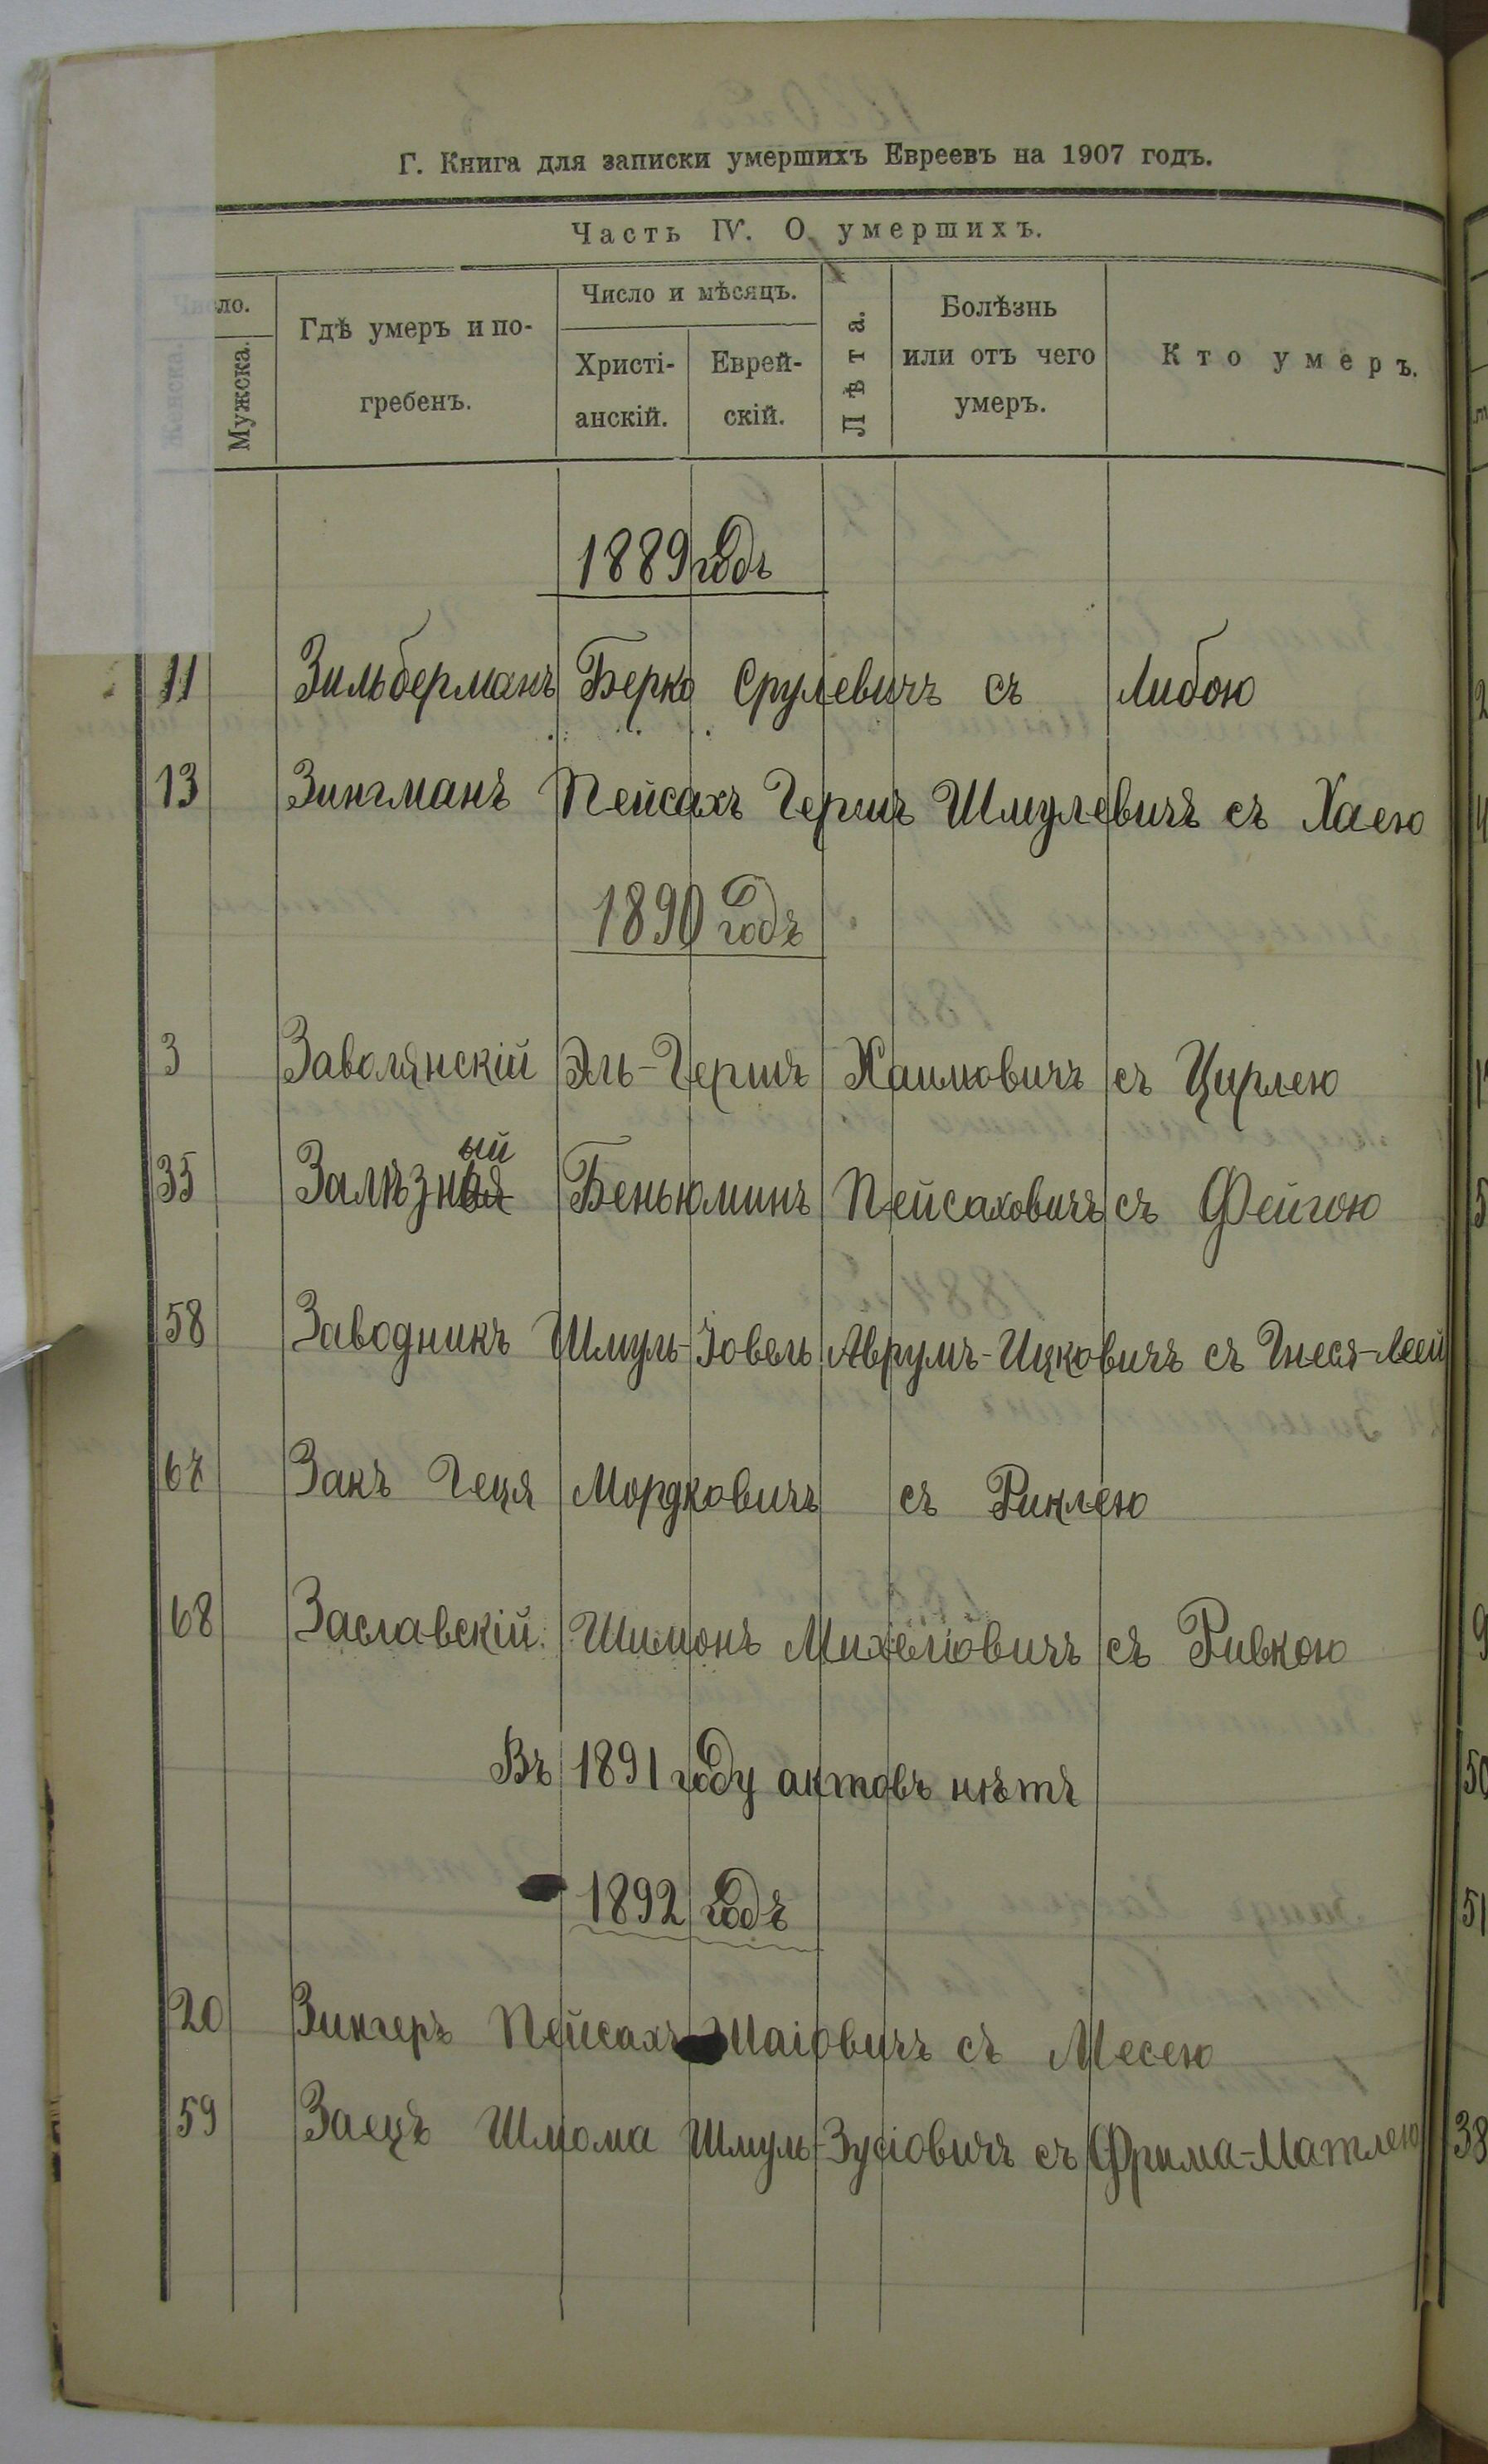 Г. Книга для записки умершихъ Евреевъ на 1907 годъ.
Часть IV. О умершихъ.
Число.
Женска.
Мужска.
Гдѣ умеръ и по-
гребенъ.
Число и мѣсяцъ.
Христі-
анскій.
Еврей-
скій.
Лѣта.
Болѣзнь
или отъ чего
умеръ.
Кто умеръ.
1889 годъ
11 Зильберманъ Берко Срулевичъ съ Либою
13 Зингманъ Пейсахъ Гершъ Шмулевичъ съ Хаею
1890 годъ
3 Заволянскій Эль-Гершъ Хаимовичъ съ Цирлею
ый
35 Залѣзная Беньюминъ Пейсаховичъ съ Фейгою
58 Заводникъ Шмуль-Іовель Аврумъ-Ицковичъ съ Гнеся-Леей
67 Закъ Геця Мордковичъ съ Риклею
68 Заславскій Шимонъ Михеліовичъ съ Ривкою
Въ 1891 году актовъ нѣтъ
1892 годъ
20 Зингеръ Пейсахъ Шаіовичъ съ Месею
59 Заецъ Шлома Шмуль-Зусіовичъ съ Фрима-Матлею